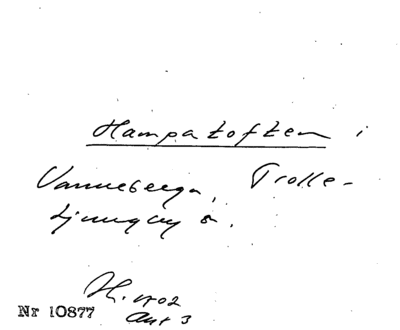 Hampatoften i
Vanneberga, Trolle-
Ljungby s.
H. 1702
Akt 3
Nr 10877